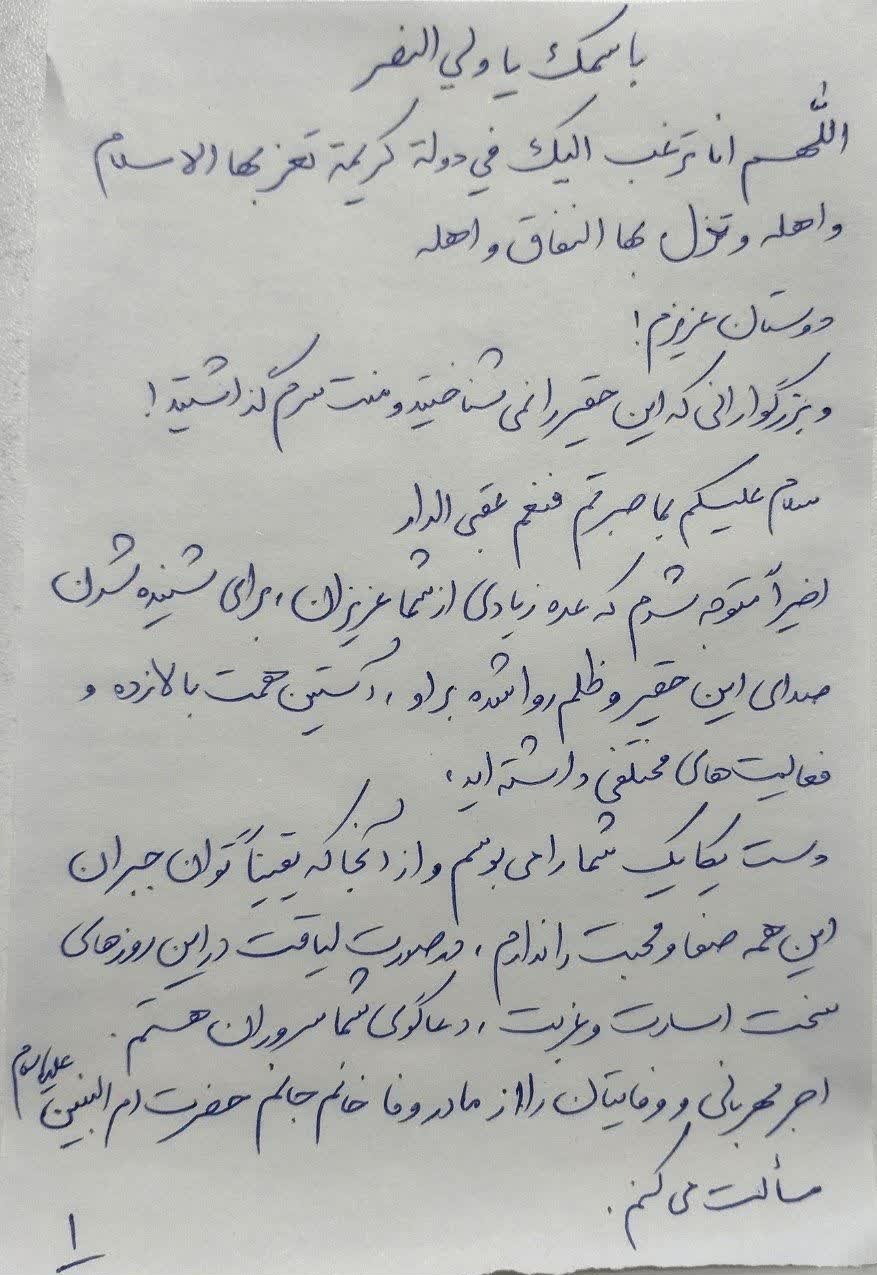 باسمك يا ولي النصر
اللّهم انا نرغب اليك في دولة كريمة تعز بها الاسلام
و اهله و تذل بها النفاق و اهله
دوستان عزیزم!
و بزرگوارانی که این حقیر را نمی‌شناختید و منت سرم گذاشتید!
سلام علیکم بما صبرتم فنعم عقبی الدار
اخیراً متوجه شدم که عده زیادی از شما عزیزان، برای شنیده شدن
صدای این حقیر و ظلم روا شده بر او، آستین همت بالا زده و
فعالیت‌های مختلفی داشته‌اید،
دست یکایک شما را می‌بوسم و از آنجا که یقیناً توان جبران
این همه صفا و محبت را ندارم، در صورت لیاقت در این روزهای
سخت اسارت و غربت، دعاگوی شما سروران هستم.
اجر مهربانی و وفایتان را از مادر وفا خانم جانم حضرت ام البنین علیها سلام
مسألت می‌کنم.
۱